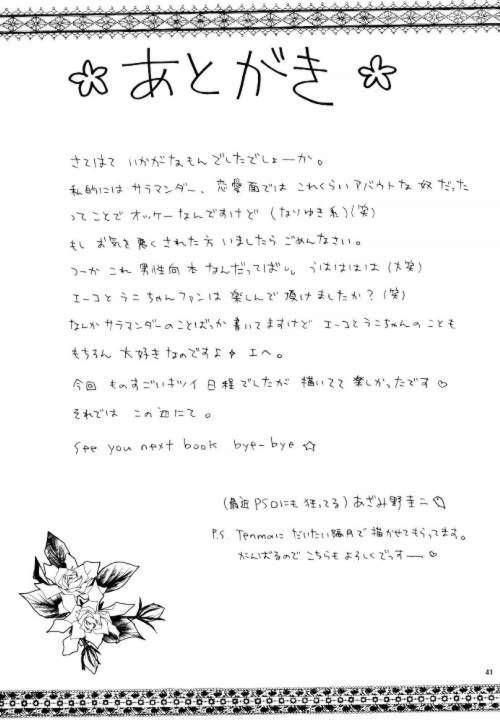 あとがき
さてはて いかがなもんでしたでしょーか。
私的には サラマンダー、恋愛面では これくらい アバウトな 奴だった
ってことで オッケーなんですけど (なりゆき系)(笑)
もし お気を悪くされた方 いましたら ごめんなさい。
つーか これ 男性向本 なんだってばし。 うはははは (大笑)
エーコとラニちゃんファンは 楽しんで頂けましたか?(笑)
なんかサラマンダーのことばっか書いてますけど エーコとラニちゃんのことも
もちろん 大好きなのですよ♪ エヘ。
今回 ものすごいキツイ 日程でしたが 描いてて 楽しかったです♡
それでは この辺にて。
See you next book bye-bye ☆
(最近PSOにも狂ってる) あざみ野圭二
P.S Tenmaに だいたい隔月で 描かせてもらってます。
がんばるので こちらも よろしくでっすー ♡
41